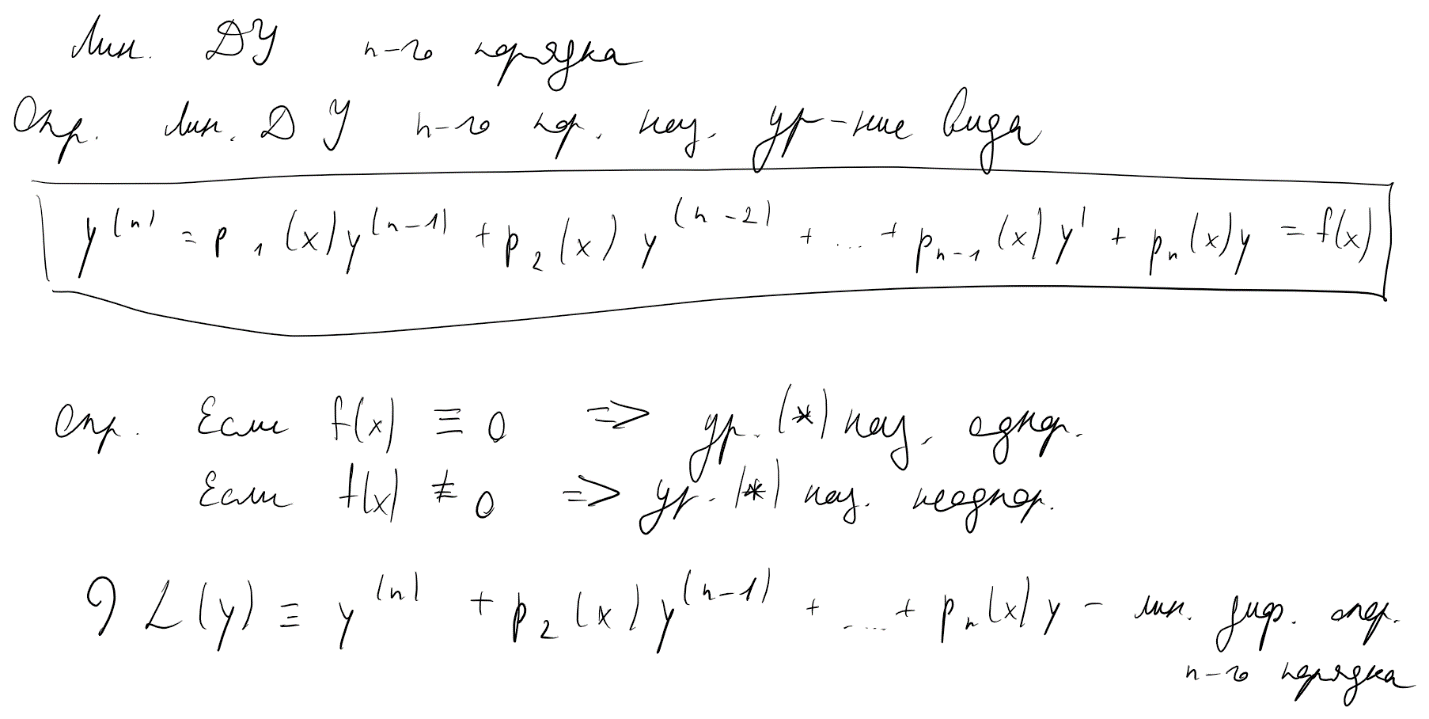 Лин. ДУ n-го порядка
Опр. Лин. ДУ n-го пор. наз. ур-ние вида
y^(n) = p_1(x)y^(n-1) + p_2(x)y^(n-2) + ... + p_{n-1}(x)y' + p_n(x)y = f(x)
Опр. Если f(x) ≡ 0 => ур. (*) наз. однор.
Если f(x) ≢ 0 => ур. (*) наз. неоднор.
L(y) ≡ y^(n) + p_2(x)y^(n-1) + ... + p_n(x)y - лин. диф. опер.
n-го порядка